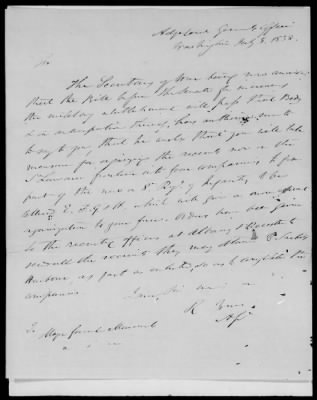 Adjutant General's Office
Washington July 8, 1838.
Sir
The Secretary of War being now
that the Bill before the Senate for increasing
the military establishment will pass that Body
in anticipation thereof, has authorized me to
say to you, that he wishes that you will take
measures for organizing the recruits now on the
St Lawrence frontier into four companies, to form
part of the new 8th Regt of Infantry, to be
E. F. G & H. which will give a more
organization to your force. Orders have been given
to the recruiting officers at Albany & Rochester
to send all the recruits they may obtain to Sackets
Harbour, as fast as enlisted, so as to complete the
companies.
I am, Sir
R. Jones
AG
To
Major General Macomb